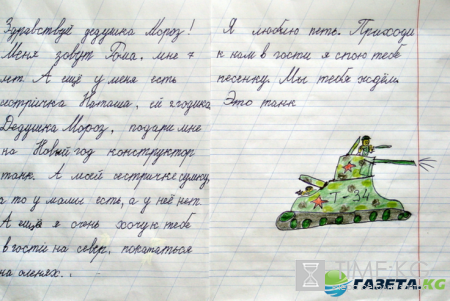 Здравствуй дедушка Мороз!
Меня зовут Рома, мне 7
лет. А ещё у меня есть
сестричка Наташа, ей 2 годика
Дедушка Мороз, подари мне
на Новый год конструктор
танк. А моей сестричке сумку,
а то у мамы есть, а у неё нет.
А ещё я очень хочу к тебе
в гости на север, покататься
на оленях.
Я люблю петь. Приходи
к нам в гости я спою тебе
песенку. Мы тебя ждём.
Это танк
Т-34
TIME.KG
GAZETA.KG